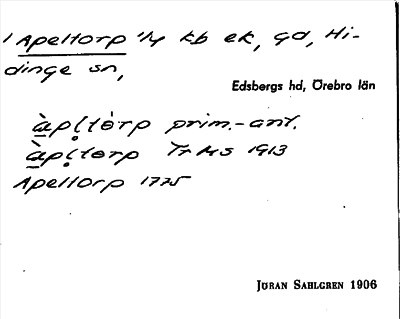 1 Apeltorp 1/4 kb ek, gd, Hi-
dinge sn,
Edsbergs hd, Örebro län
àpl̥tòrp prim.-ant.
àpl̥torp TrMS 1913
Apeltorp 1775
JÖRAN SAHLGREN 1906